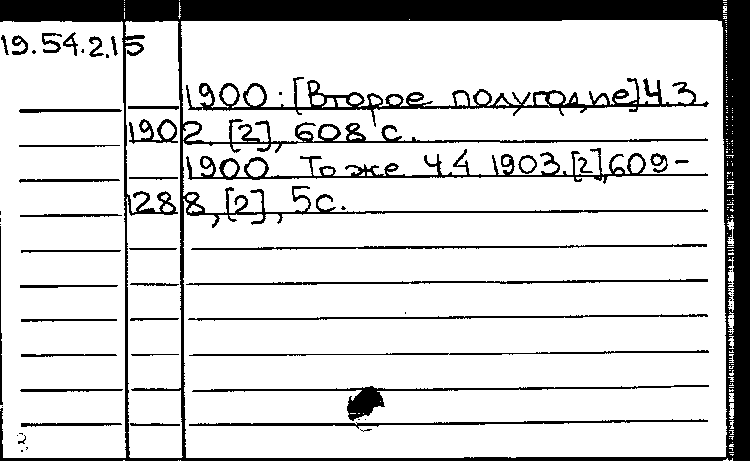 19.54.2.15
1900: [Второе полугодие]. Ч.3.
1902. [2], 608 с.
1900. То же Ч.4 1903. [2], 609-
1288, [2], 5с.
3